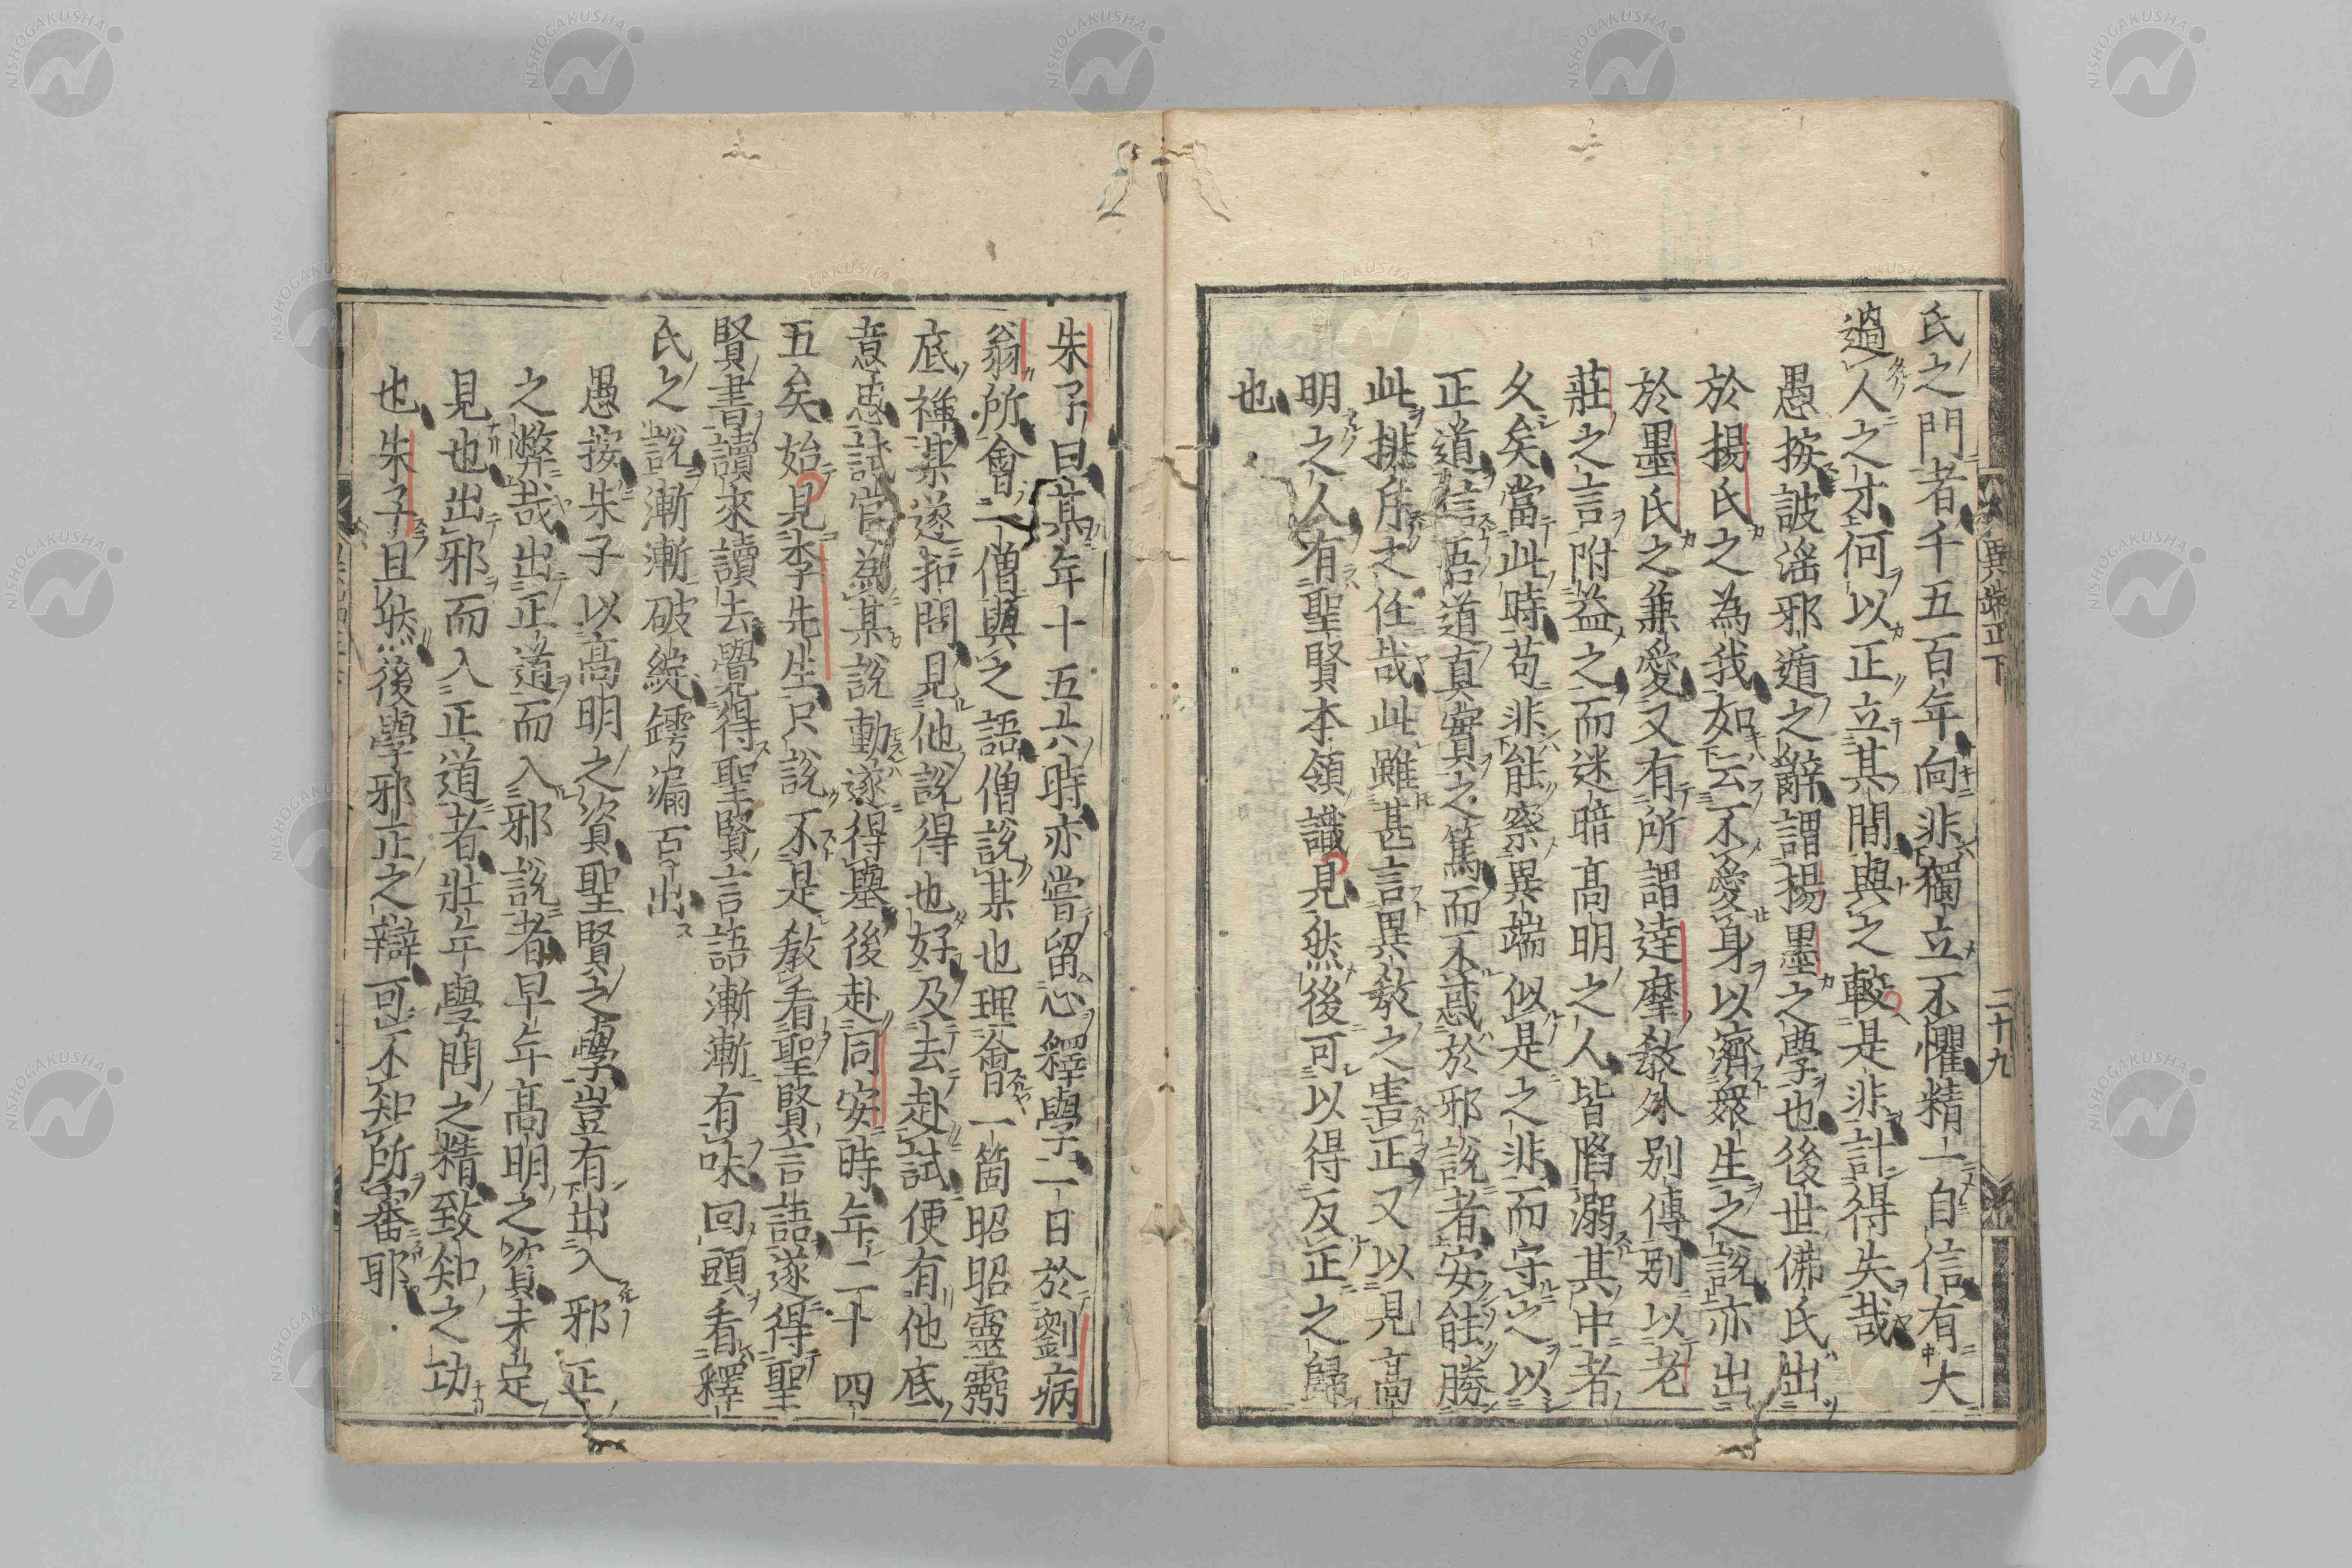 氏之門者千五百年向非獨立不懼精一自信有大
過人之才何以正立其間與之較是非計得失哉
愚按詖淫邪遁之辭謂楊墨之學也後世佛氏出
於楊氏之為我如云不愛身以濟衆生之說亦出
於墨氏之兼愛又有所謂達摩教外別傳別以老
莊之言附益之而迷暗高明之人皆陷溺其中者
久矣當此時苟非能察異端似是之非而守之以
正道信吾道真實之篤而不惑於邪說者安能勝
此排斥之任哉此雖甚言異教之害正又以見高
明之人有聖賢本領識見然後可以得反正之歸
也
異端正下
二十九
朱子曰某年十五六時亦嘗留心釋學一日於劉病
翁所會一僧與之語僧說某也理會一箇昭昭靈靈
底禪某遂扣問見他說得也好及去赴試便有他底
意思試官為某說動遂得舉後赴同安時年二十四
五矣始見李先生只說不是教看聖賢言語遂得聖
賢書讀來讀去覺得聖賢言語漸漸有味回頭看釋
氏之說漸漸破綻罅漏百出
愚按朱子以高明之資聖賢之學豈有出入邪正
之弊哉出正道而入邪說者早年高明之資未定
見也出邪而入正道者壯年學問之精致知之功
也朱子且然後學邪正之辯可不知所審耶